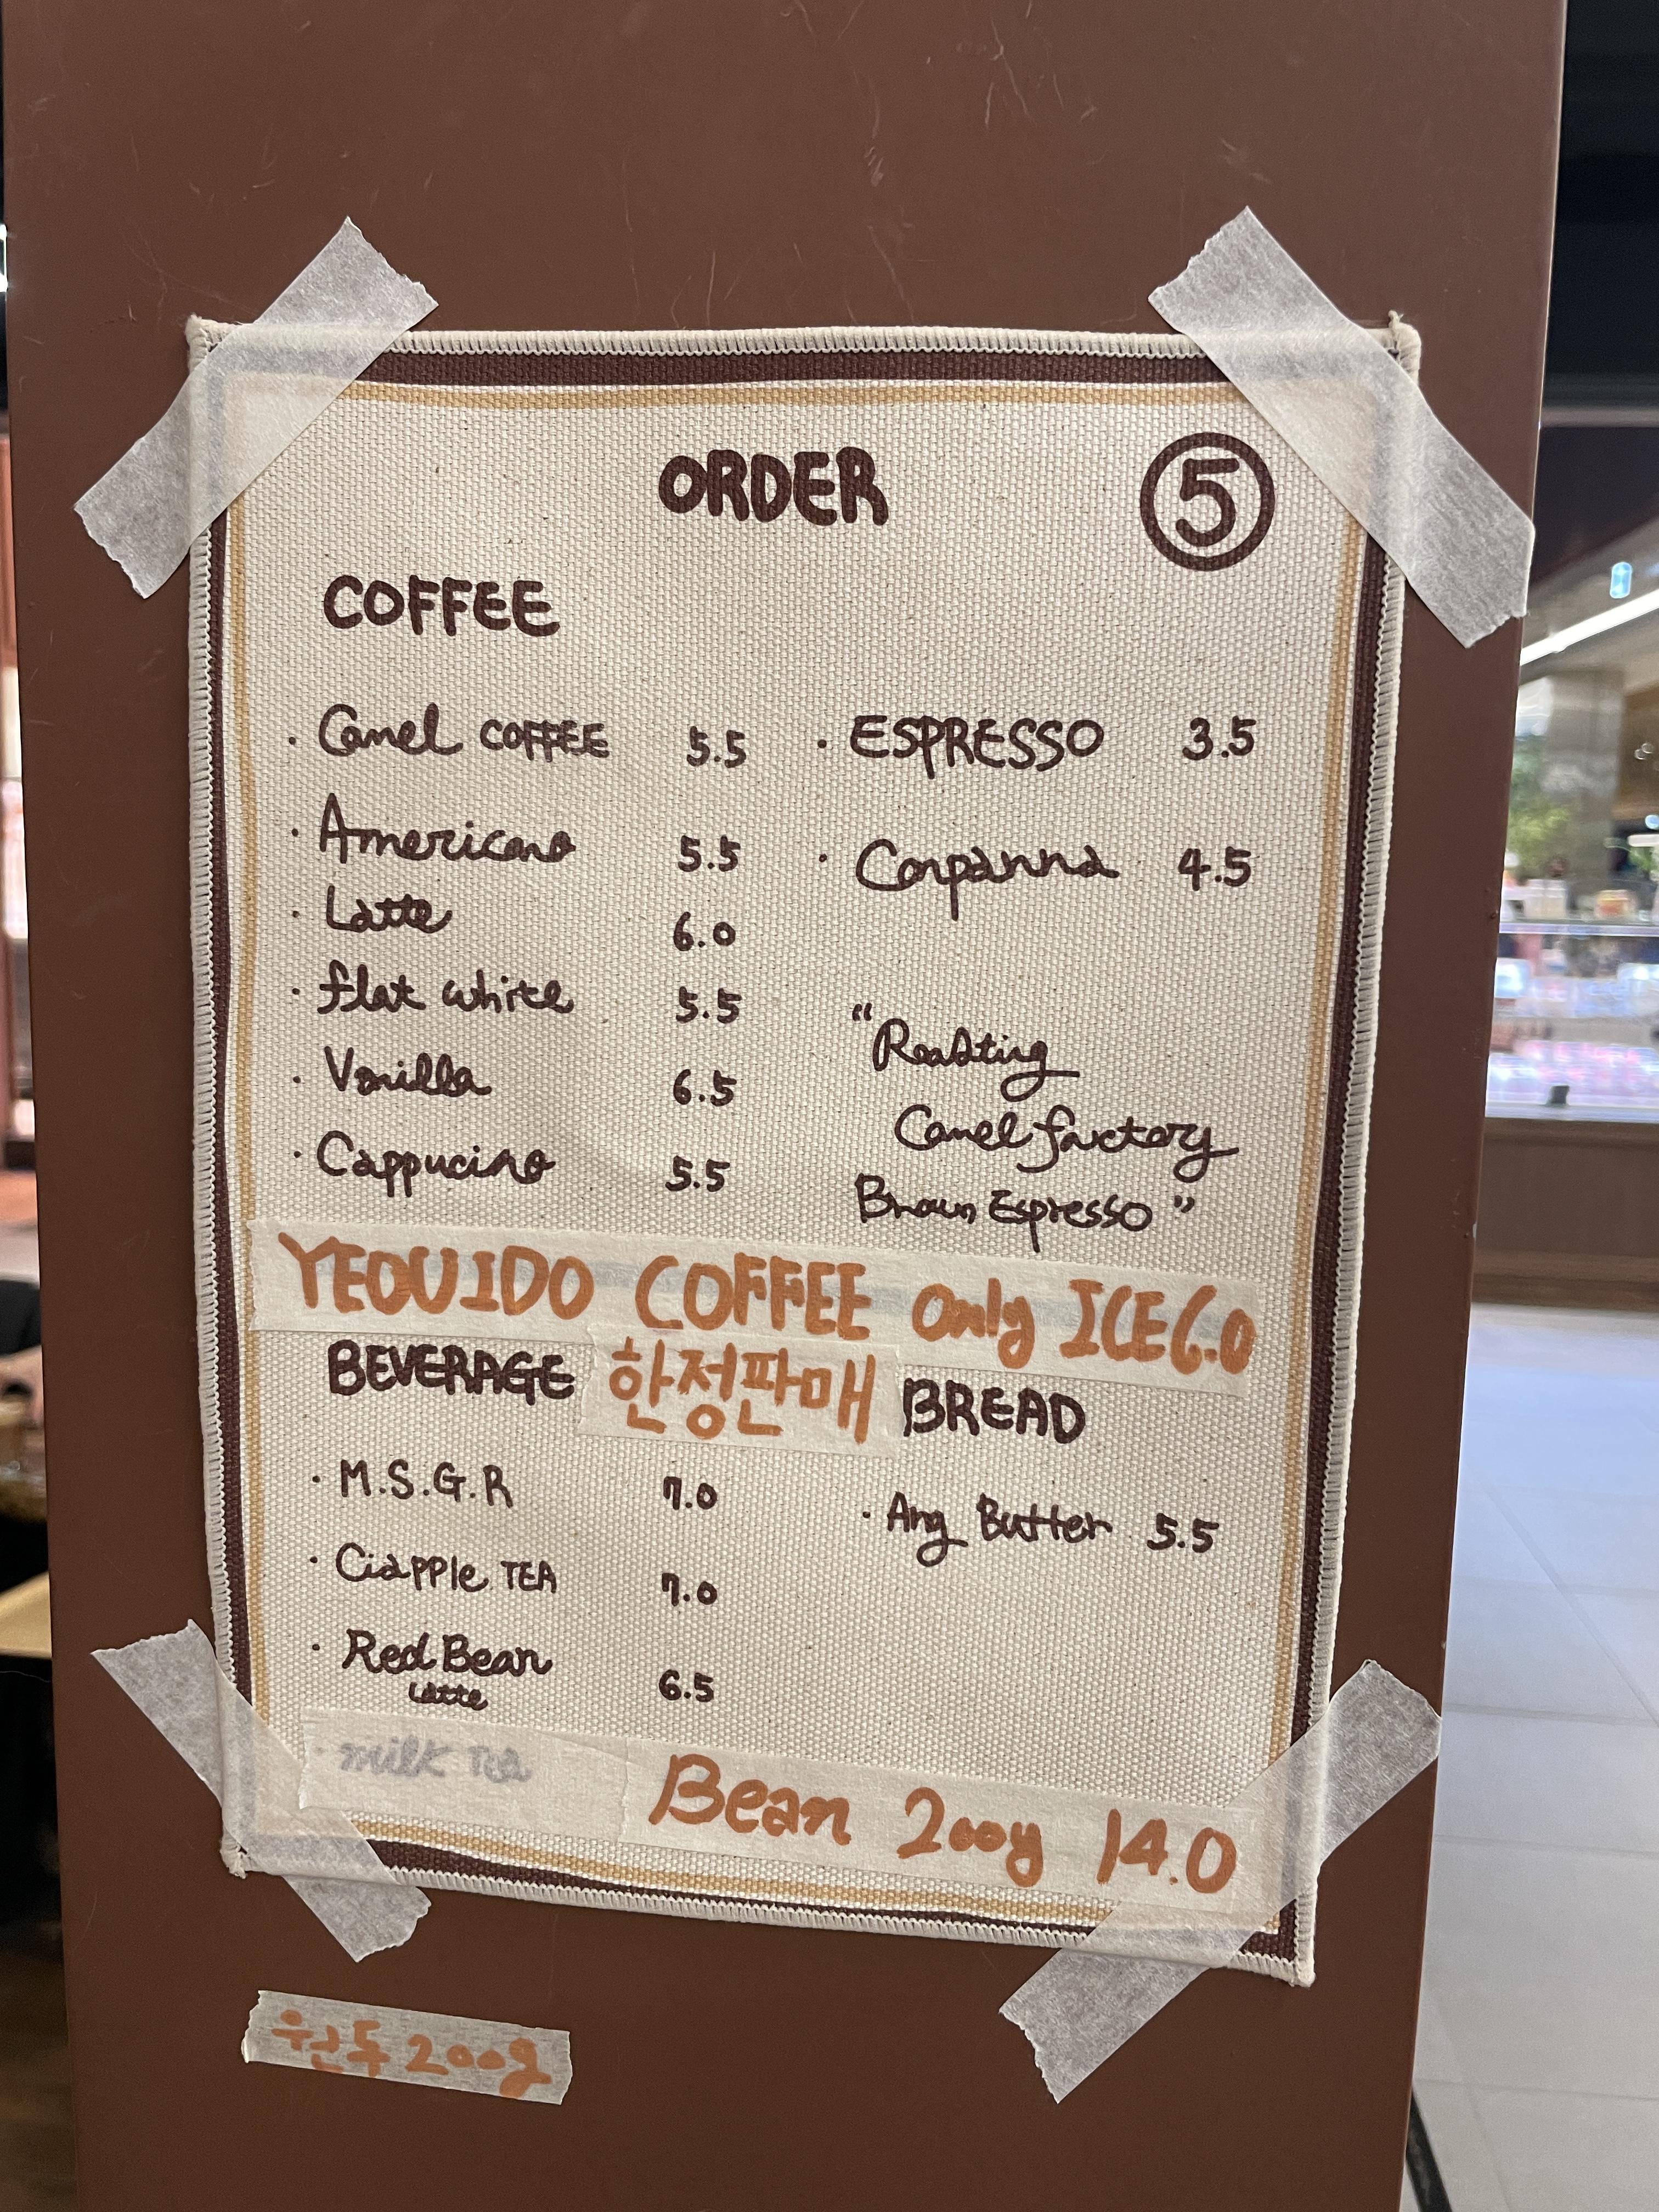 ORDER ⑤
COFFEE
· Camel COFFEE 5.5
· Americano 5.5
· Latte 6.0
· flat white 5.5
· Vanilla 6.5
· Cappucino 5.5
· ESPRESSO 3.5
· Conpanna 4.5
"Roasting
Camel factory
Brown Espresso"
YEOUIDO COFFEE only ICE 6.0
한정판매
BEVERAGE
· M.S.G.R 7.0
· Ciapple TEA 7.0
· Red Bean
Latte 6.5
· milk Tea
BREAD
· Ang Butter 5.5
Bean 200g 14.0
원두 200g